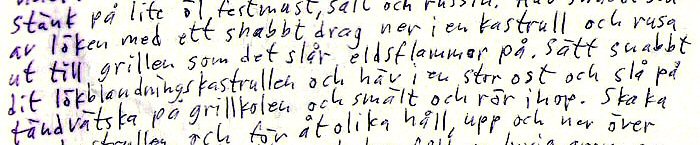 stänk på lite öl, festmust, salt och russin.
av löken med ett snabbt drag ner i en kastrull och rusa
ut till grillen som det slår eldsflammor på. Sätt snabbt
dit lökblandningskastrullen och häv i en stor ost och slå på
tändvätska på grillkolen och smält och rör ihop. Skaka
och för åt olika håll, upp och ner över